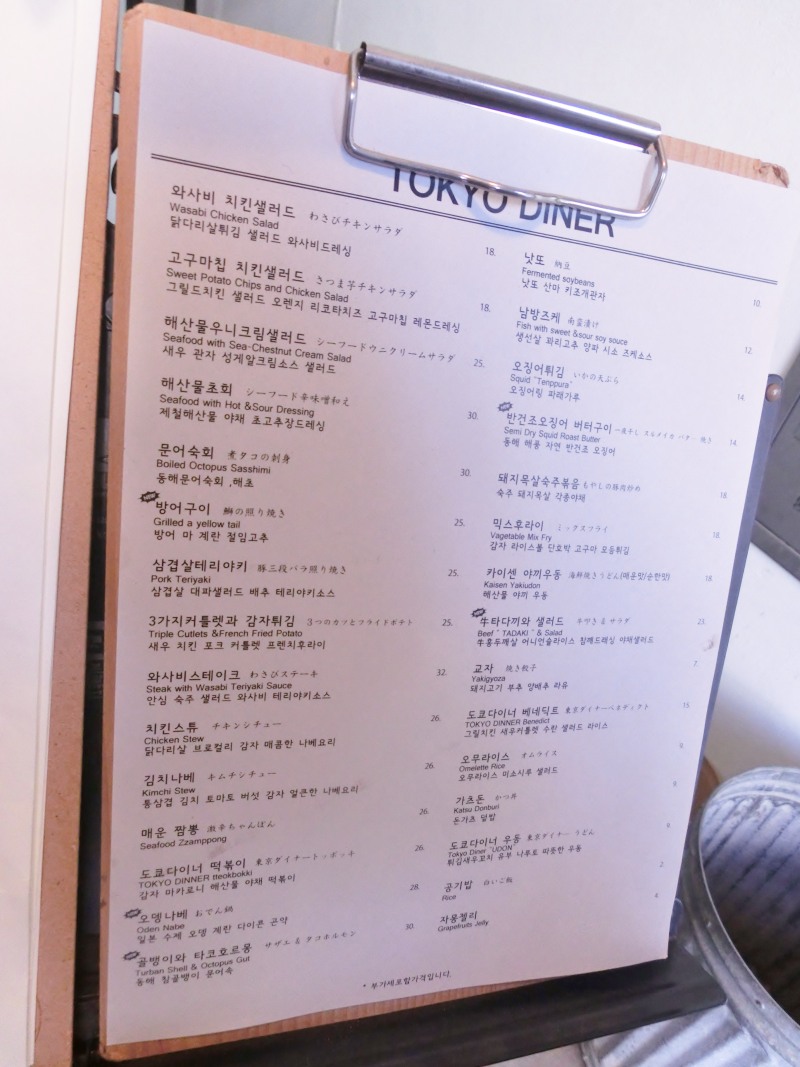 TOKYO DINER
와사비 치킨샐러드 わさびチキンサラダ 18.
Wasabi Chicken Salad
닭다리살튀김 샐러드 와사비드레싱
고구마칩 치킨샐러드 さつま芋チキンサラダ 18.
Sweet Potato Chips and Chicken Salad
그릴드치킨 샐러드 오렌지 리코타치즈 고구마칩 레몬드레싱
해산물우니크림샐러드 シーフードウニクリームサラダ 25.
Seafood with Sea-Chestnut Cream Salad
새우 관자 성게알크림소스 샐러드
해산물초회 シーフード辛味噌和え 30.
Seafood with Hot &Sour Dressing
제철해산물 야채 초고추장드레싱
문어숙회 煮タコの刺身 30.
Boiled Octopus Sasshimi
동해문어숙회 ,해초
방어구이 鰤の照り焼き 25.
Grilled a yellow tail
방어 마 계란 절임고추
삼겹살테리야키 豚三段バラ照り焼き 25.
Pork Teriyaki
삼겹살 대파샐러드 배추 테리야키소스
3가지커틀렛과 감자튀김 3つのカツとフライドポテト 25.
Triple Cutlets &French Fried Potato
새우 치킨 포크 커틀렛 프렌치후라이
와사비스테이크 わさびステーキ 32.
Steak with Wasabi Teriyaki Sauce
안심 숙주 샐러드 와사비 테리야키소스
치킨스튜 チキンシチュー 26.
Chicken Stew
닭다리살 브로컬리 감자 매콤한 나베요리
김치나베 キムチシチュー 26.
Kimchi Stew
통삼겹 김치 토마토 버섯 감자 얼큰한 나베요리
매운 짬뽕 激辛ちゃんぽん 26.
Seafood Zzamppong
도쿄다이너 떡볶이 東京ダイナートッポッキ 26.
TOKYO DINNER tteokbokki
감자 마카로니 해산물 야채 떡볶이
오뎅나베 おでん鍋 28.
Oden Nabe
일본 수제 오뎅 계란 다이콘 곤약
골뱅이와 타코호르몽 サザエ & タコホルモン 30.
Turban Shell & Octopus Gut
동해 참골뱅이 문어속
낫또 納豆 10.
Fermented soybeans
낫또 산마 키조개관자
남방즈케 南蛮漬け 12.
Fish with sweet &sour soy sauce
생선살 꽈리고추 양파 시소 즈케소스
오징어튀김 いかの天ぷら 14.
Squid "Tenppura"
오징어링 파래가루
반건조오징어 버터구이 一夜干し スルメイカ バター 焼き 14.
Semi Dry Squid Roast Butter
동해 해풍 자연 반건조 오징어
돼지목살숙주볶음 もやしの豚肉炒め 18.
숙주 돼지목살 각종야채
믹스후라이 ミックスフライ 18.
Vagetable Mix Fry
감자 라이스볼 단호박 고구마 모듬튀김
카이센 야끼우동 海鮮焼きうどん(매운맛/순한맛) 18.
Kaisen Yakiudon
해산물 야끼 우동
牛타다끼와 샐러드 牛叩き & サラダ 23.
Beef " TADAKI " & Salad
牛홍두깨살 어니언슬라이스 참깨드레싱 야채샐러드
교자 焼き餃子 7.
Yakigyoza
돼지고기 부추 양배추 라유
도쿄다이너 베네딕트 東京ダイナーベネディクト 15.
TOKYO DINNER Benedict
그릴치킨 새우커틀렛 수란 샐러드 라이스
오무라이스 オムライス 9.
Omelette Rice
오무라이스 미소시루 샐러드
가츠돈 かつ丼 9.
Katsu Donburi
돈가츠 덮밥
도쿄다이너 우동 東京ダイナー うどん 9.
Tokyo Diner "UDON"
튀김새우꼬치 유부 나루토 따뜻한 우동
공기밥 白いご飯 2.
Rice
자몽젤리 4.
Grapefruits Jelly
* 부가세포함가격입니다.